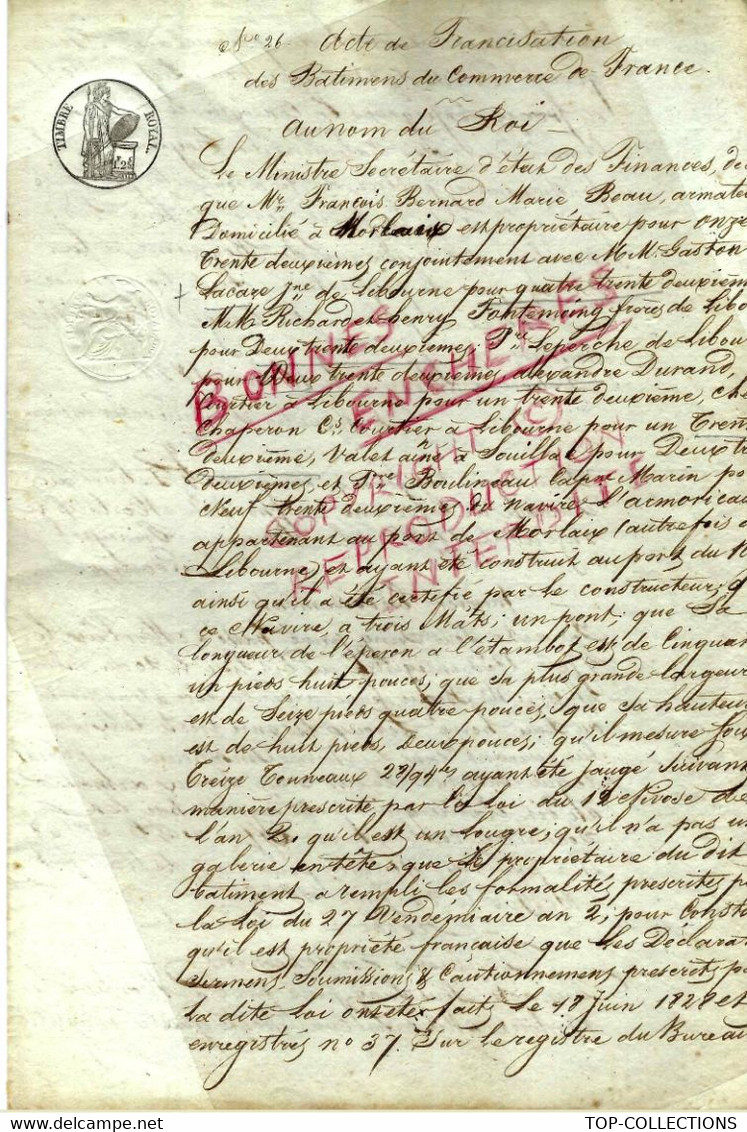 No 26. Acte de Francisation
des Bâtimens du Commerce de France.
au nom du Roi
TIMBRE ROYAL
Le Ministre Secrétaire d'état des Finances, de
que Mr. François Bernard Marie Beau, armate
Domicilié à Morlaix est propriétaire pour onze
trente deuxièmes conjointement avec M.M. Gaston
Lacaze jne de Libourne pour quatre trente deuxièm
M.M. Richard et henry Fontemoing frères de Libo
pour Deux trente deuxièmes, Leperche de Libou
pour Deux trente deuxièmes alexandre Durand,
Courtier à Libourne pour un trente deuxième, ch
Chaperon Courtier à Libourne pour un Trent
deuxième, Valet ainé à Souillac pour Deux tr
deuxièmes et Boulineau Capne Marin po
Neuf trente deuxièmes du navire l'armorica
appartenant au port de Morlaix (autrefois d
Libourne) et ayant été construit au port du
ainsi qu'il a été certifié par le constructeur; q
ce Navire, a trois Mâts; un pont; que Sa
longueur de l'éperon a l'étambot est de Cinquan
un pieds huit pouces; que sa plus grande largeur
est de Seize pieds quatre pouces, que sa hauteur
est de huit pieds, deux pouces; qu'il mesure
Treize Tonneaux 28/94es ayant été jaugé Suivant
manière prescrite par la Loi du 12 nivose de
l'an 2. qu'il est un lougre; qu'il n'a pas un
galerie en tête; que le propriétaire du dit
bâtiment a rempli les formalités prescrites p
la Loi du 27 Vendémiaire an 2, pour Const
qu'il est propriété française que les Déclarat
Sermens, Soumissions & Cautionnement prescrits pa
la dite Loi ont été faits le 18 Juin 1828 et
enregistrés no 37. Sur le registre du Bureau
BONNES
ENCHERES
COPYRIGHT (C)
REPRODUCTION
INTERDITE
TOP-COLLECTIONS